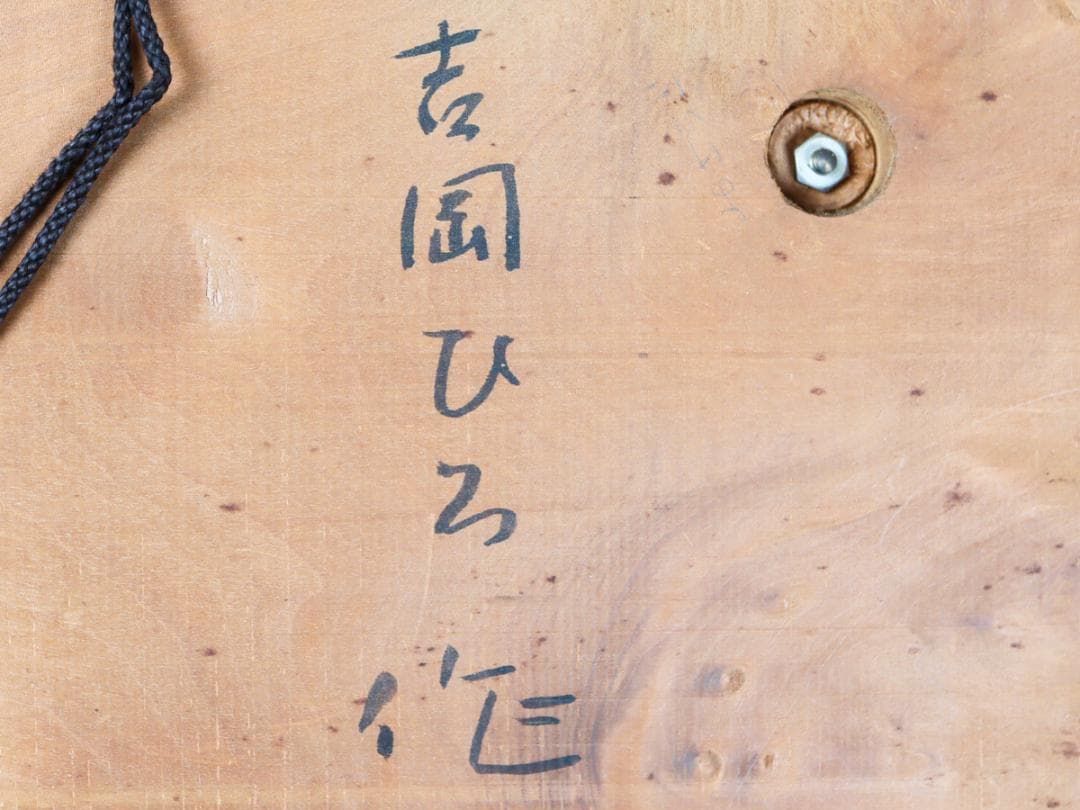 吉岡ひろ 作